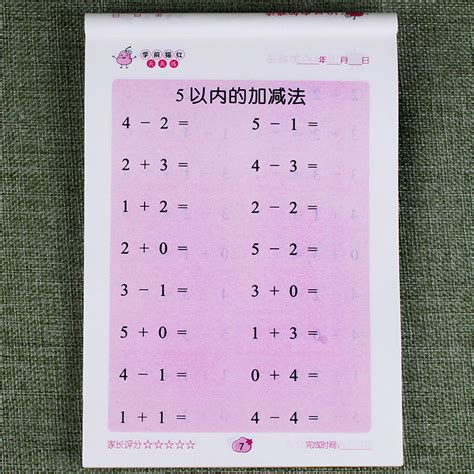 学前描红
天天练
年 月 日
5以内的加减法
4 - 2 = 5 - 1 =
2 + 3 = 4 - 3 =
1 + 2 = 2 - 2 =
2 + 0 = 5 - 2 =
3 - 1 = 3 + 0 =
5 + 0 = 1 + 3 =
4 - 1 = 0 + 4 =
1 + 1 = 4 - 4 =
家长评分☆☆☆☆☆ 7 完成时间: